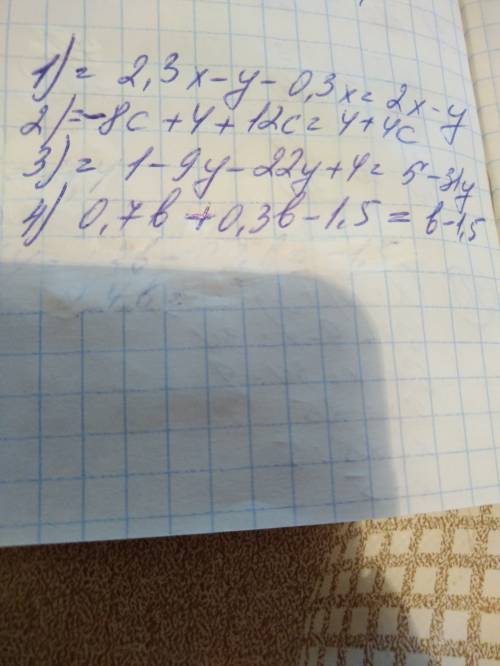 1) = 2,3x-y-0,3x= 2x-y
2) =-8c+4+12c= 4+4c
3) = 1-9y-22y+4= 5-31y
4) 0,7b+0,3b-1,5=b-1,5